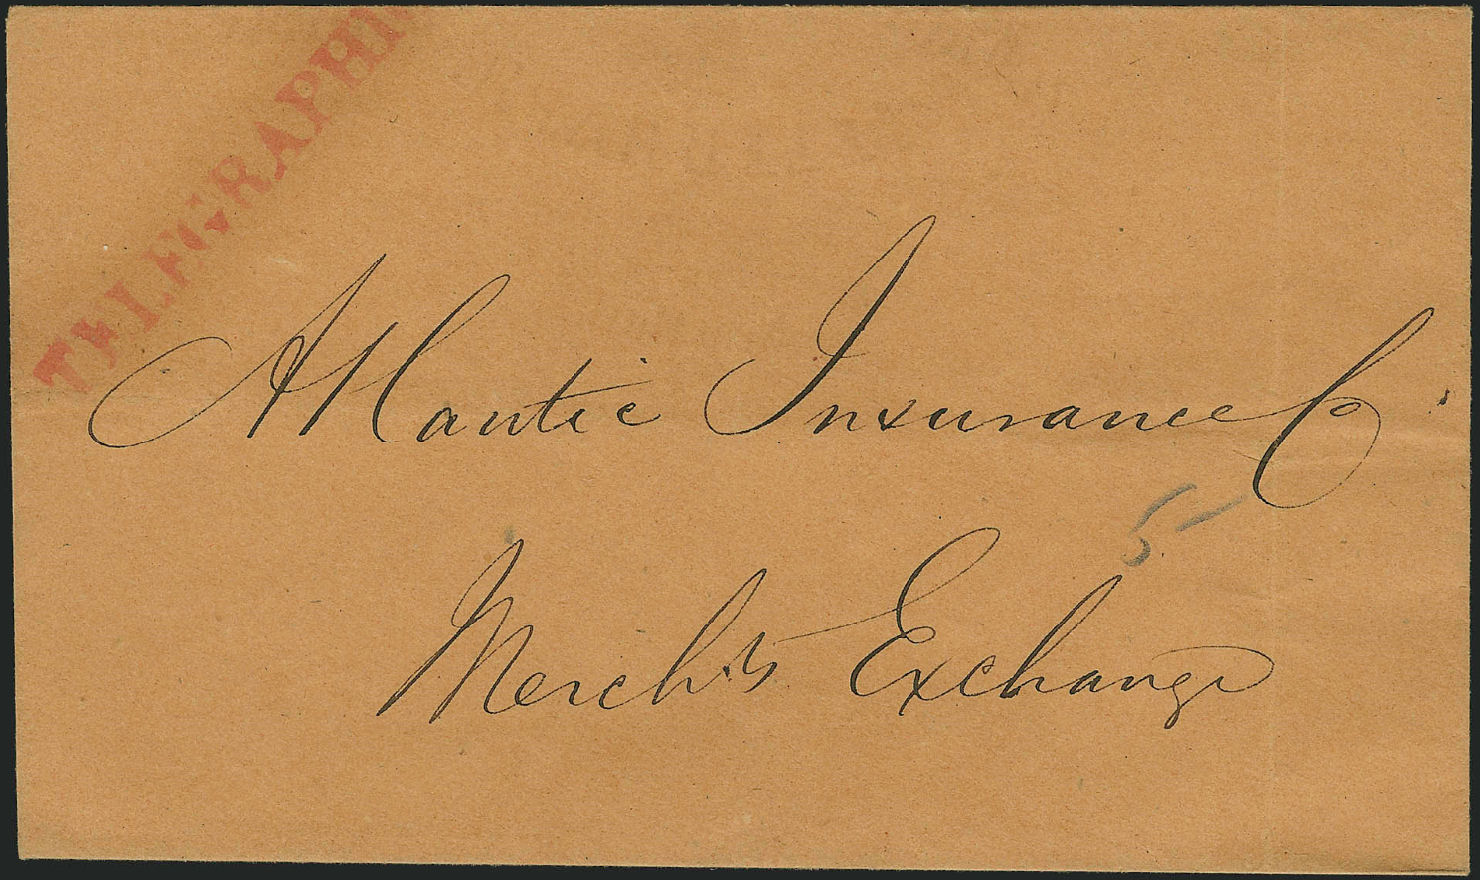 TELEGRAPHI
Atlantic Insurance Co.
5
Merchts Exchange